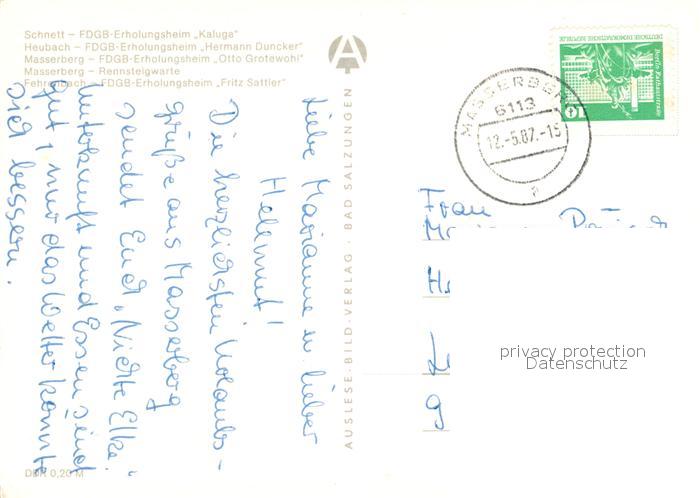 Schnett – FDGB-Erholungsheim „Kaluga"
Heubach – FDGB-Erholungsheim „Hermann Duncker"
Masserberg – FDGB-Erholungsheim „Otto Grotewohl"
Masserberg – Rennsteigwarte
Fehrenbach – FDGB-Erholungsheim „Fritz Sattler"
Liebe Marianne u. lieber
Helmut!
Die herzlichsten Urlaubs-
grüße aus Masserberg
sendet Euch „Nichte Elke."
Unterkunft und Essen sind
gut, nur das Wetter könnte
sich bessern.
AUSLESE-BILD-VERLAG · BAD SALZUNGEN
DDR 0,20 M
MASSERBERG
6113
12.-5.87.-15
a
DEUTSCHE DEMOKRATISCHE REPUBLIK
Berlin
10
Frau
H
L
9
privacy protection
Datenschutz